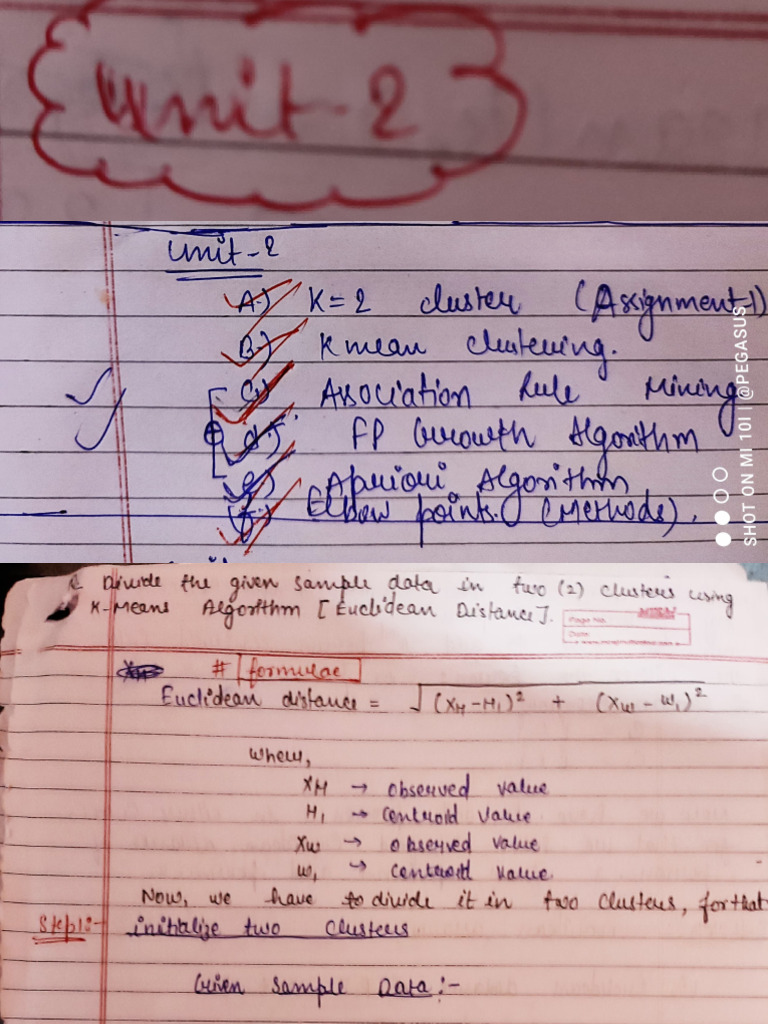 Unit-2
Unit-2
A.) K=2 cluster (Assignment-1)
B.) K mean clustering.
C.) Association Rule Mining
d.) FP Growth Algorithm
e.) Apriori Algorithm
f.) Elbow points. (Methods).
SHOT ON MI 10I | @PEGASUS
Divide the given sample data in two (2) clusters using
K-Means Algorithm [Euclidean Distance].
Page No.
Date:
# formulae
Euclidean distance = √(XH-H1)² + (XW-W1)²
where,
XH → observed value
H1 → centroid value
XW → observed value
W1 → centroid value.
Now, we have to divide it in two clusters, for that
Step1:- initialize two clusters
Given sample Data:-